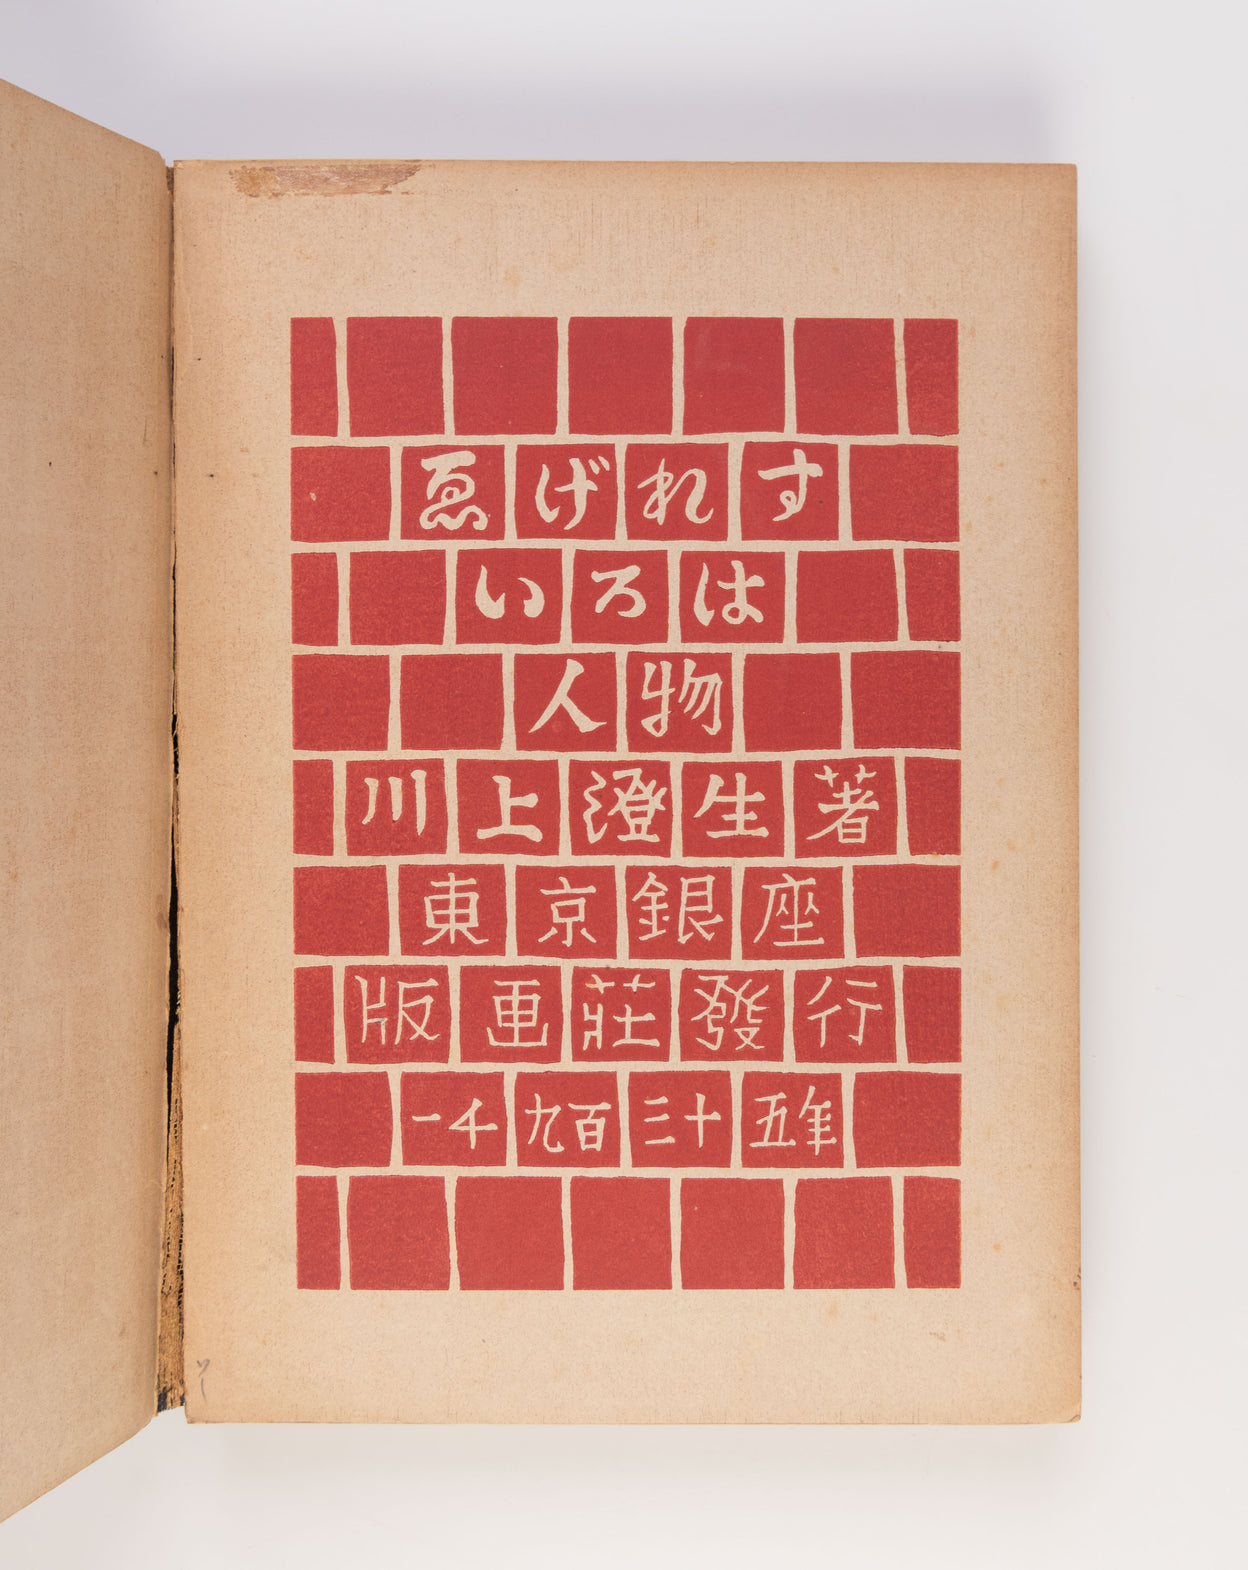 ゑげれす
いろは
人物
川上澄生著
東京銀座
版画莊發行
一千九百三十五年